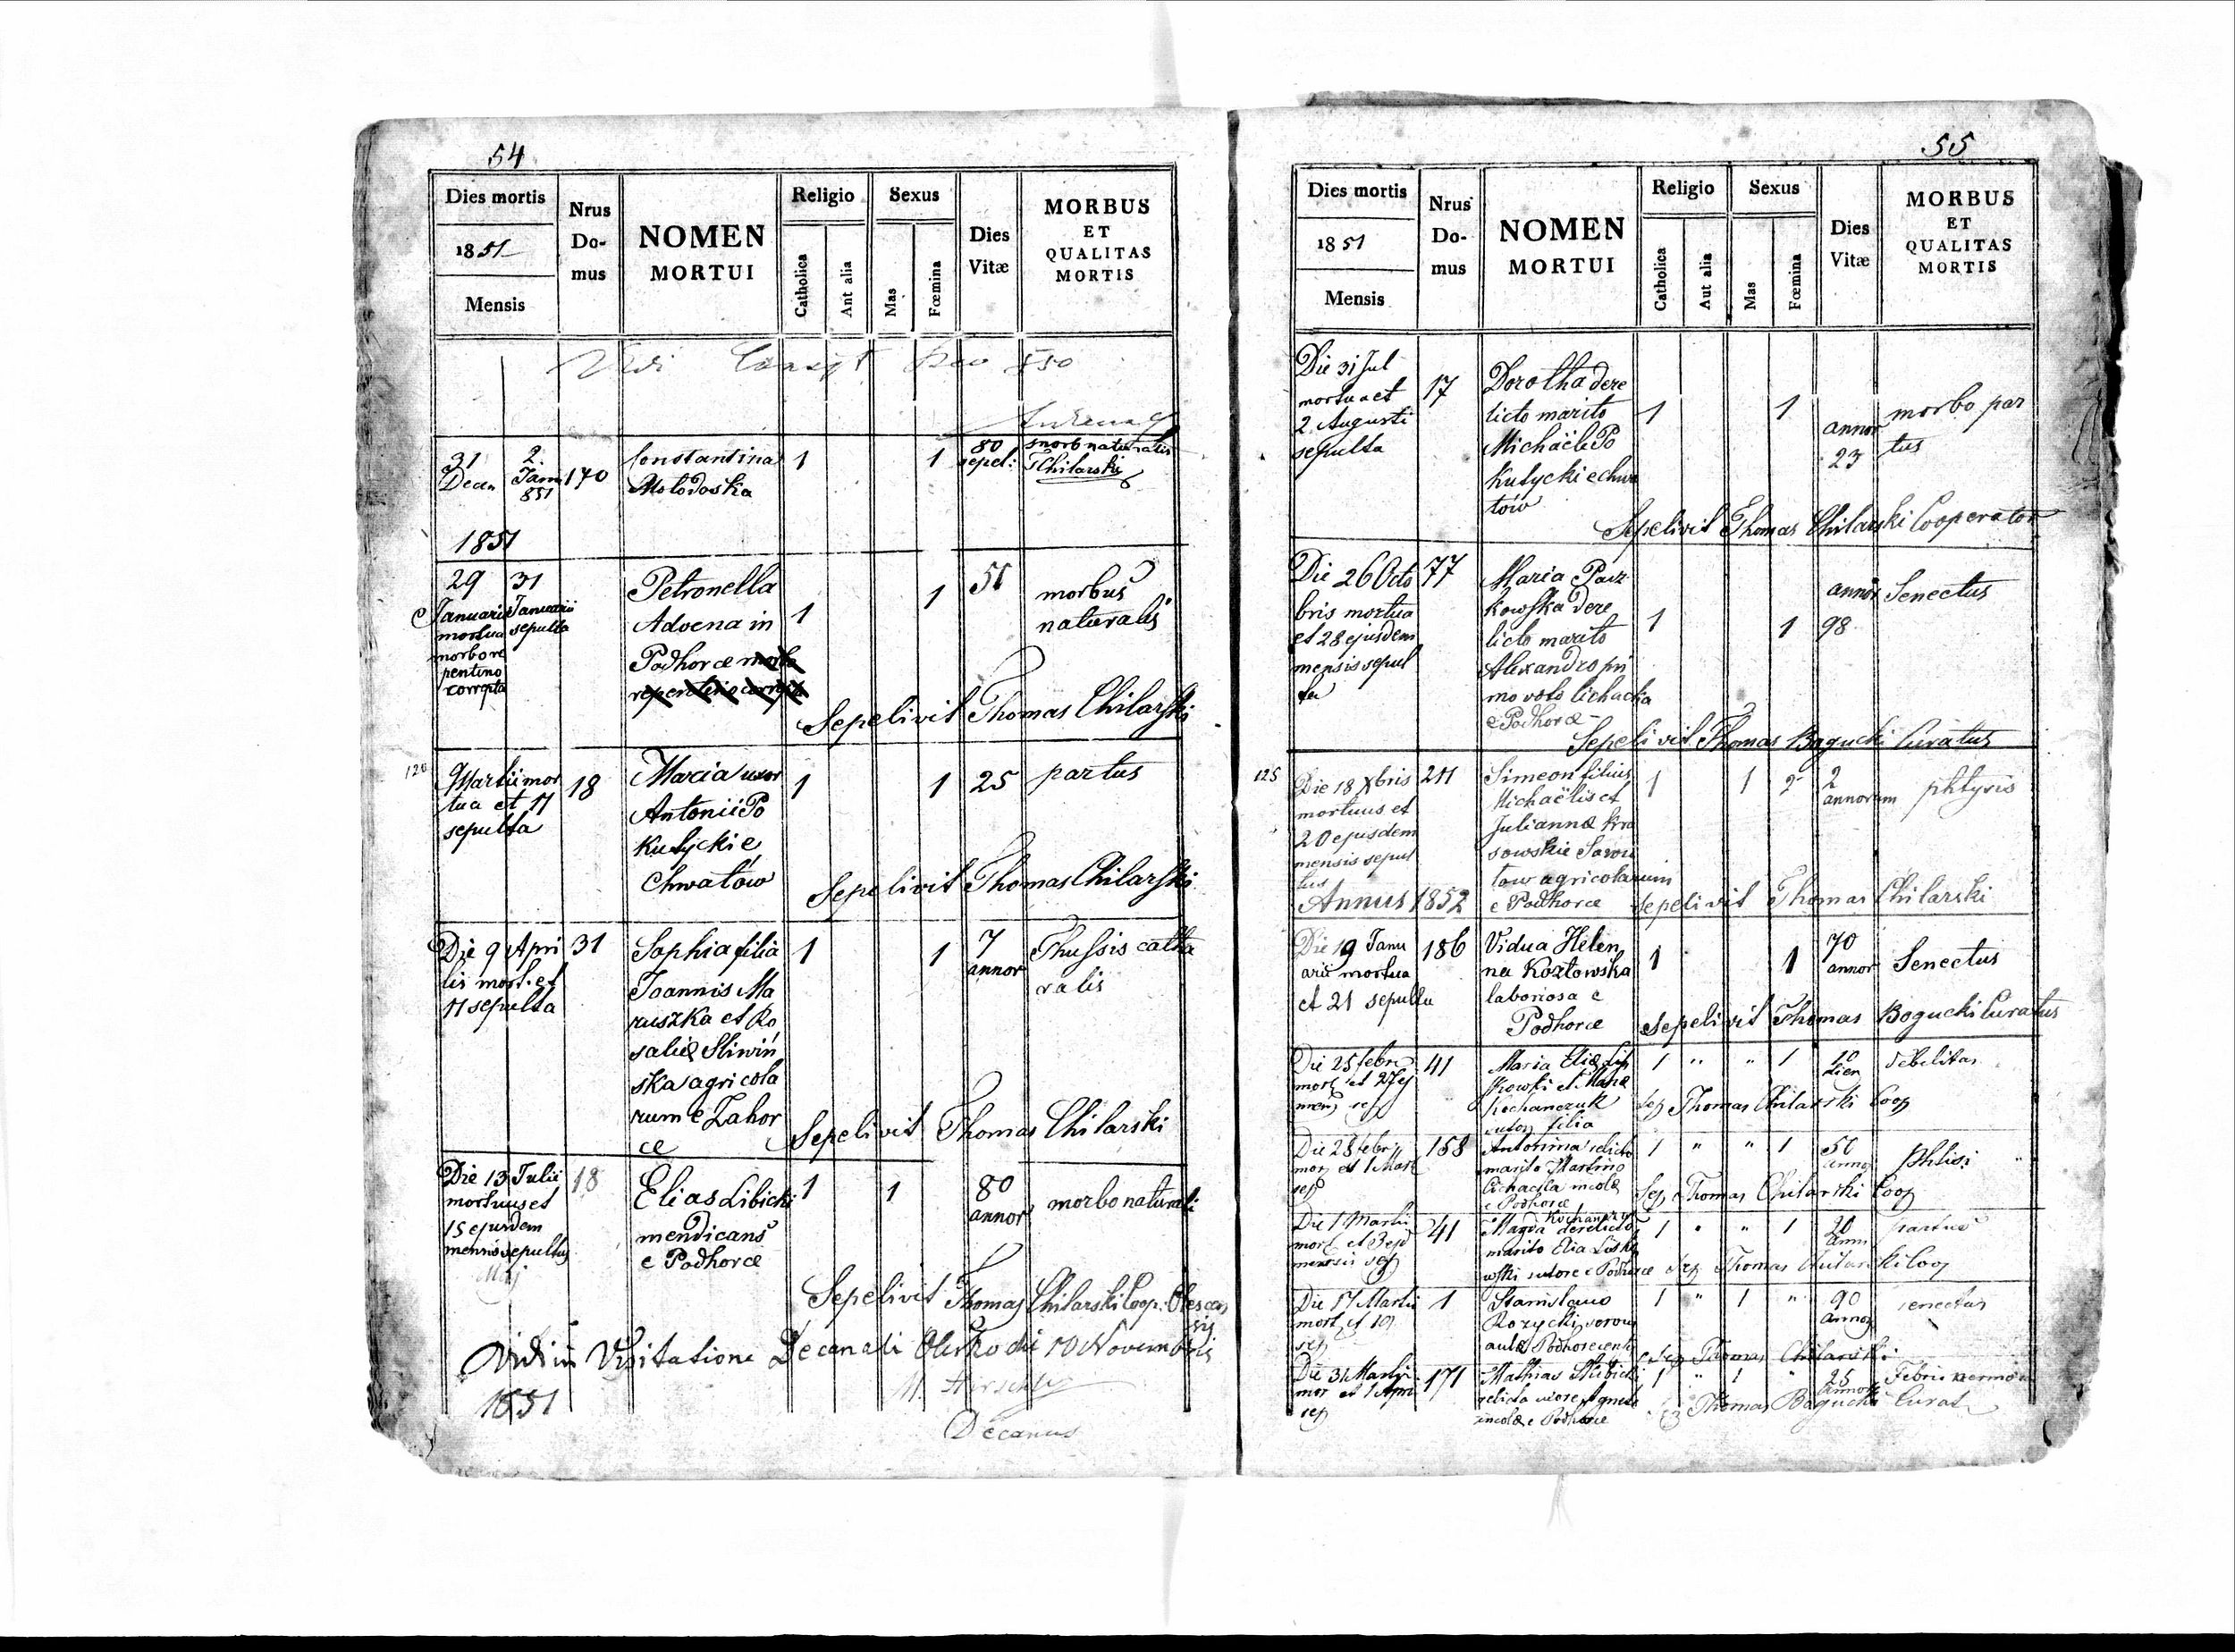 54
Dies mortis
1851
Mensis
Nrus
Do-
mus
NOMEN
MORTUI
Religio
Catholica
Ant alia
Sexus
Mas
Fœmina
Dies
Vitæ
MORBUS
ET
QUALITAS
MORTIS
Vidi
31
Decem
2
Janu
851
170
Constantina
Molodoska
1
1
80
sepel:
morb naturalis
TChilarski
1851
29
Januarii
mortua
morbo re
pentino
correpta
31
Januarii
sepulta
Petronella
Advena in
Podhorce morbo
repentino correpta
1
1
51
morbus
naturalis
Sepelivit Thomas Chilarski
120
9 Martii mor
tua et 11
sepulta
18
Maria uxor
Antonii Po
Kutycki e
Chwatow
1
1
25
partus
Sepelivit Thomas Chilarski
Die 9 Apri
lis mort. et
11 sepulta
31
Sophia filia
Joannis Ma
ruszka et Ro
saliæ Sliwiń
ska agricola
rum e Zahor
ce
1
1
7
annor
Thussis catha
ralis
Sepelivit Thomas Chilarski
Die 13 Julii
mortuus et
15 ejusdem
mensis sepultus
18
Elias Libicki
mendicans
e Podhorce
1
1
80
annor
morbo naturali
Sepelivit Thomas Chilarski Coop:
Vidi in Visitatione Decanali Olesko die 10 Novembris
1851
Decanus
55
Dies mortis
1851
Mensis
Nrus
Do-
mus
NOMEN
MORTUI
Religio
Catholica
Aut alia
Sexus
Mas
Fœmina
Dies
Vitæ
MORBUS
ET
QUALITAS
MORTIS
Die 31 Jul
mortua et
2 Augusti
sepulta
17
Dorotha dere
licto marito
Michaële Po
Kutycki e chwa
tow
1
1
annor
23
morbo par
tus
Sepelivit Thomas Chilarski Cooperator
Die 26 Octo
bris mortua
et 28 ejusdem
mensis sepul
ta
77
Maria Paz
kowska dere
licto marito
Alexandro pri
mo voto Cichacka
e Podhorce
1
1
annor
98
Senectus
Sepelivit Thomas Bogucki Curatus
125
Die 18 Xbris
mortuus et
20 ejusdem
mensis sepul
tus
211
Simeon filius
Michaëlis et
Juliannæ Kra
sowskie
tow agricolarum
e Podhorce
1
1
2
2
annorum
phtysis
Sepelivit Thomas Chilarski
Annus 1852
Die 19 Janu
arii mortua
et 21 sepulta
186
Vidua Helen
na Kozłowska
laboriosa e
Podhorce
1
1
70
annor
Senectus
Sepelivit Thomas Bogucki Curatus
Die 25 febr
mort et 27 ej
mens sep
41
Maria Eliæ
et Mariæ
Kochanczuk
filia
1 " " 1
10
dier
debilitas
Sep Thomas Chilarski Coop
Die 28 febr
mor et 1 Mart
sep
158
Antonina relicto
marito Martino
Cichacka incolæ
e Podhorce
1 " " 1
50
anno
phtisi
Sep Thomas Chilarski Coop
Die 1 Martii
mort et 3 ejd
mensis sep
41
Magda derelicto
marito Elia
sutore e Podhorce
1 " " 1
20
anni
partus
Sep Thomas Chilarski Coop
Die 17 Martii
mort et 19
sep
1
Stanislaus
Rozycki
aulæ Podhorcensis
1 " 1 "
90
anno
senectus
Sep Thomas Chilarski
Die 31 Martii
mor et 1 Apri
sep
171
Mathias
relicta uxore Agnete
incolæ e Podhorce
1 " 1 "
25
annor
Febris
Thomas Bogucki Curat